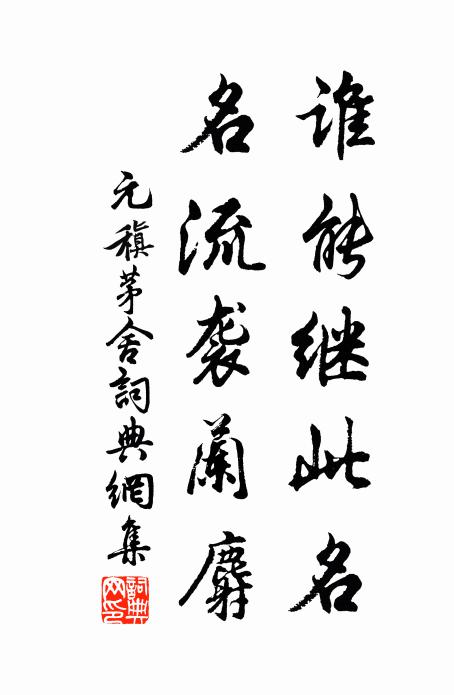 谁能继此名
名流袭蘭麝
元稹茅舍詞典網集
詞典网印